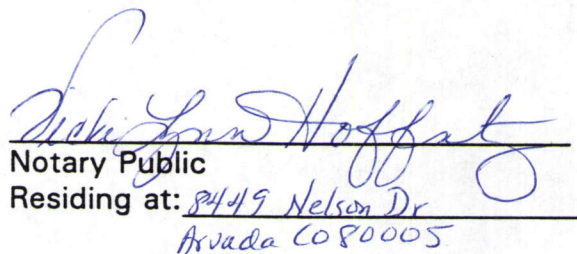 Vicki Lynn Hoffsetz
Notary Public
Residing at: 8449 Nelson Dr
Arvada CO 80005